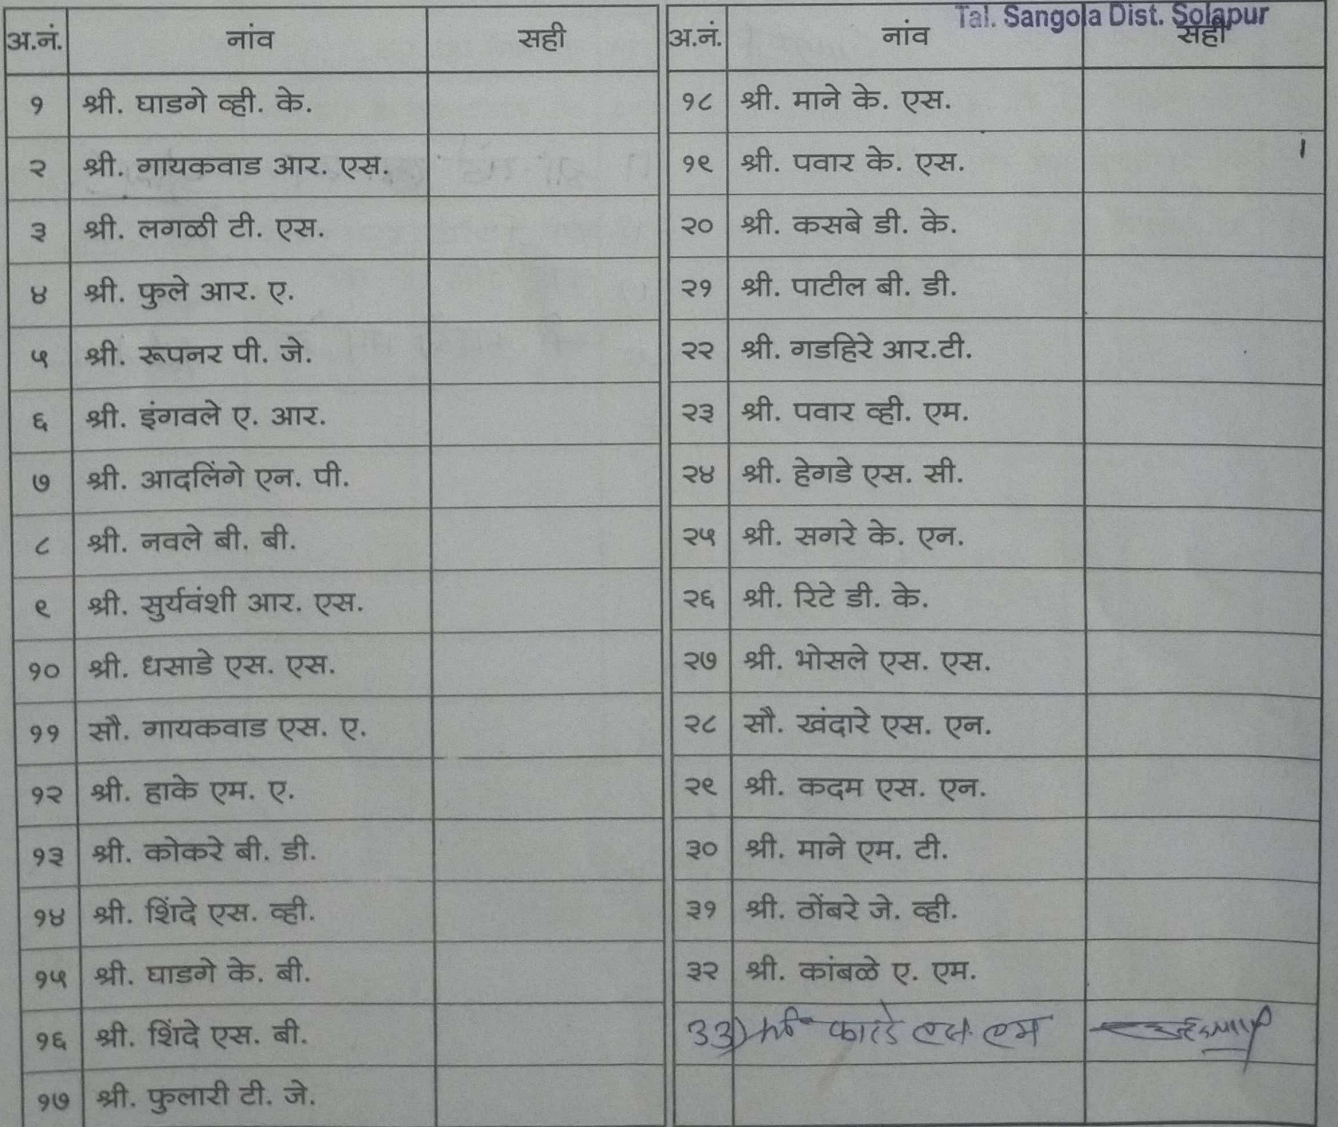 Tal. Sangola Dist. Solapur
अ.नं. नांव सही
१ श्री. घाडगे व्ही. के.
२ श्री. गायकवाड आर. एस.
३ श्री. लगळी टी. एस.
४ श्री. फुले आर. ए.
५ श्री. रूपनर पी. जे.
६ श्री. इंगवले ए. आर.
७ श्री. आदलिंगे एन. पी.
८ श्री. नवले बी. बी.
९ श्री. सुर्यवंशी आर. एस.
१० श्री. धसाडे एस. एस.
११ सौ. गायकवाड एस. ए.
१२ श्री. हाके एम. ए.
१३ श्री. कोकरे बी. डी.
१४ श्री. शिंदे एस. व्ही.
१५ श्री. घाडगे के. बी.
१६ श्री. शिंदे एस. बी.
१७ श्री. फुलारी टी. जे.
अ.नं. नांव सही
१८ श्री. माने के. एस.
१९ श्री. पवार के. एस.
२० श्री. कसबे डी. के.
२१ श्री. पाटील बी. डी.
२२ श्री. गडहिरे आर.टी.
२३ श्री. पवार व्ही. एम.
२४ श्री. हेगडे एस. सी.
२५ श्री. सगरे के. एन.
२६ श्री. रिटे डी. के.
२७ श्री. भोसले एस. एस.
२८ सौ. खंदारे एस. एन.
२९ श्री. कदम एस. एन.
३० श्री. माने एम. टी.
३१ श्री. ठोंबरे जे. व्ही.
३२ श्री. कांबळे ए. एम.
33) श्री एम